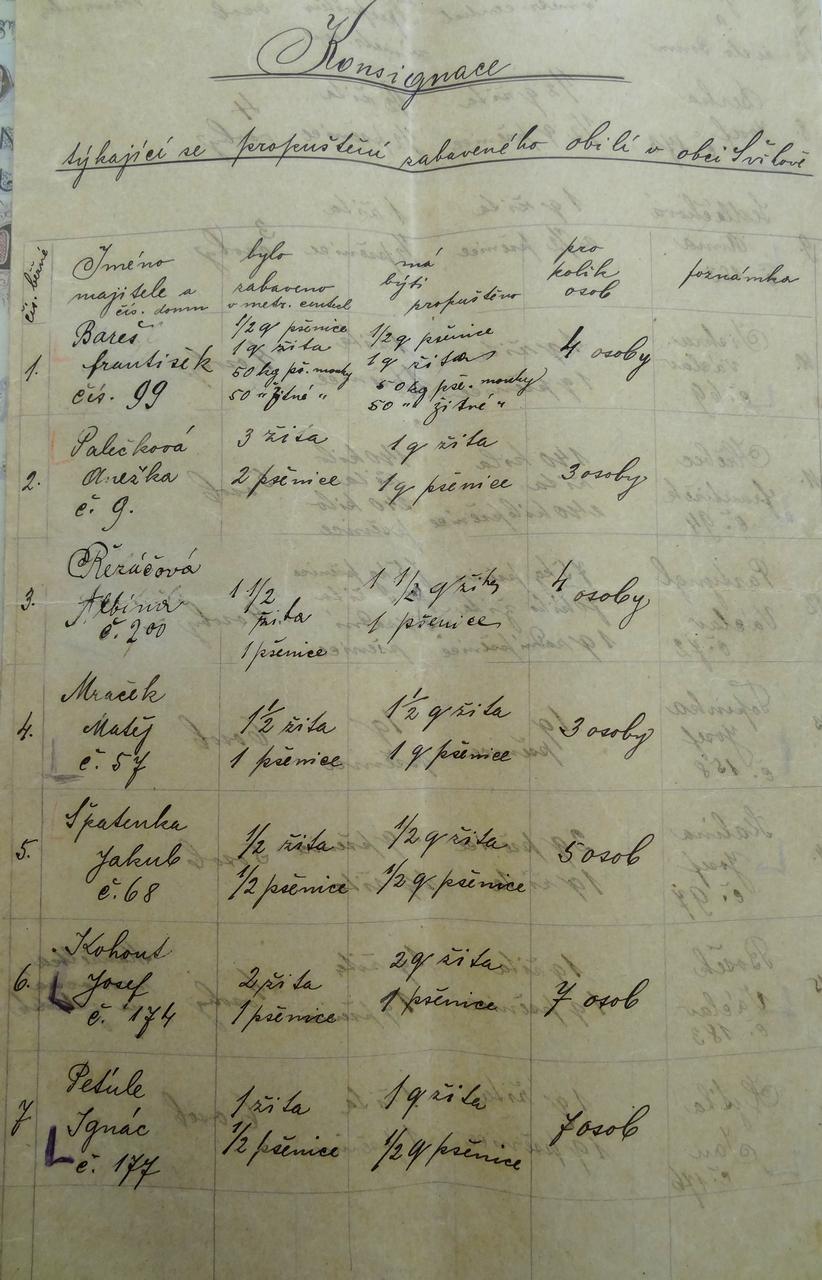 Konsignace
týkající se propuštění zabaveného obilí v obci
čís. běžné
Jméno
majitele a
čís. domu
bylo
zabaveno
v metr. centech
má
býti
propuštěno
pro
kolik
osob
poznámka
1.
Bareš
františek
čís. 99
1/2 q pšenice
1 q žita
50 kg pš. mouky
50 " žitné "
1/2 q pšenice
1 q žita
50 kg pše. mouky
50 " žitné "
4 osoby
2.
Palečková
Anežka
č. 9.
3 žita
2 pšenice
1 q žita
1 q pšenice
3 osoby
3.
Řezáčová
Albína
č. 200
1 1/2
žita
1 pšenice
1 1/2 q žita
1 pšenice
4
osoby
4.
Mraček
Matěj
č. 57
1 1/2 žita
1 pšenice
1 1/2 q žita
1 q pšenice
3 osoby
5.
Špatenka
Jakub
č. 68
1/2 žita
1/2 pšenice
1/2 q žita
1/2 q pšenice
5 osob
6.
Kohout
Josef
č. 174
2 žita
1 pšenice
2 q žita
1 pšenice
7 osob
7
Petúle
Ignác
č. 177
1 žita
1/2 pšenice
1 q žita
1/2 q pšenice
7 osob